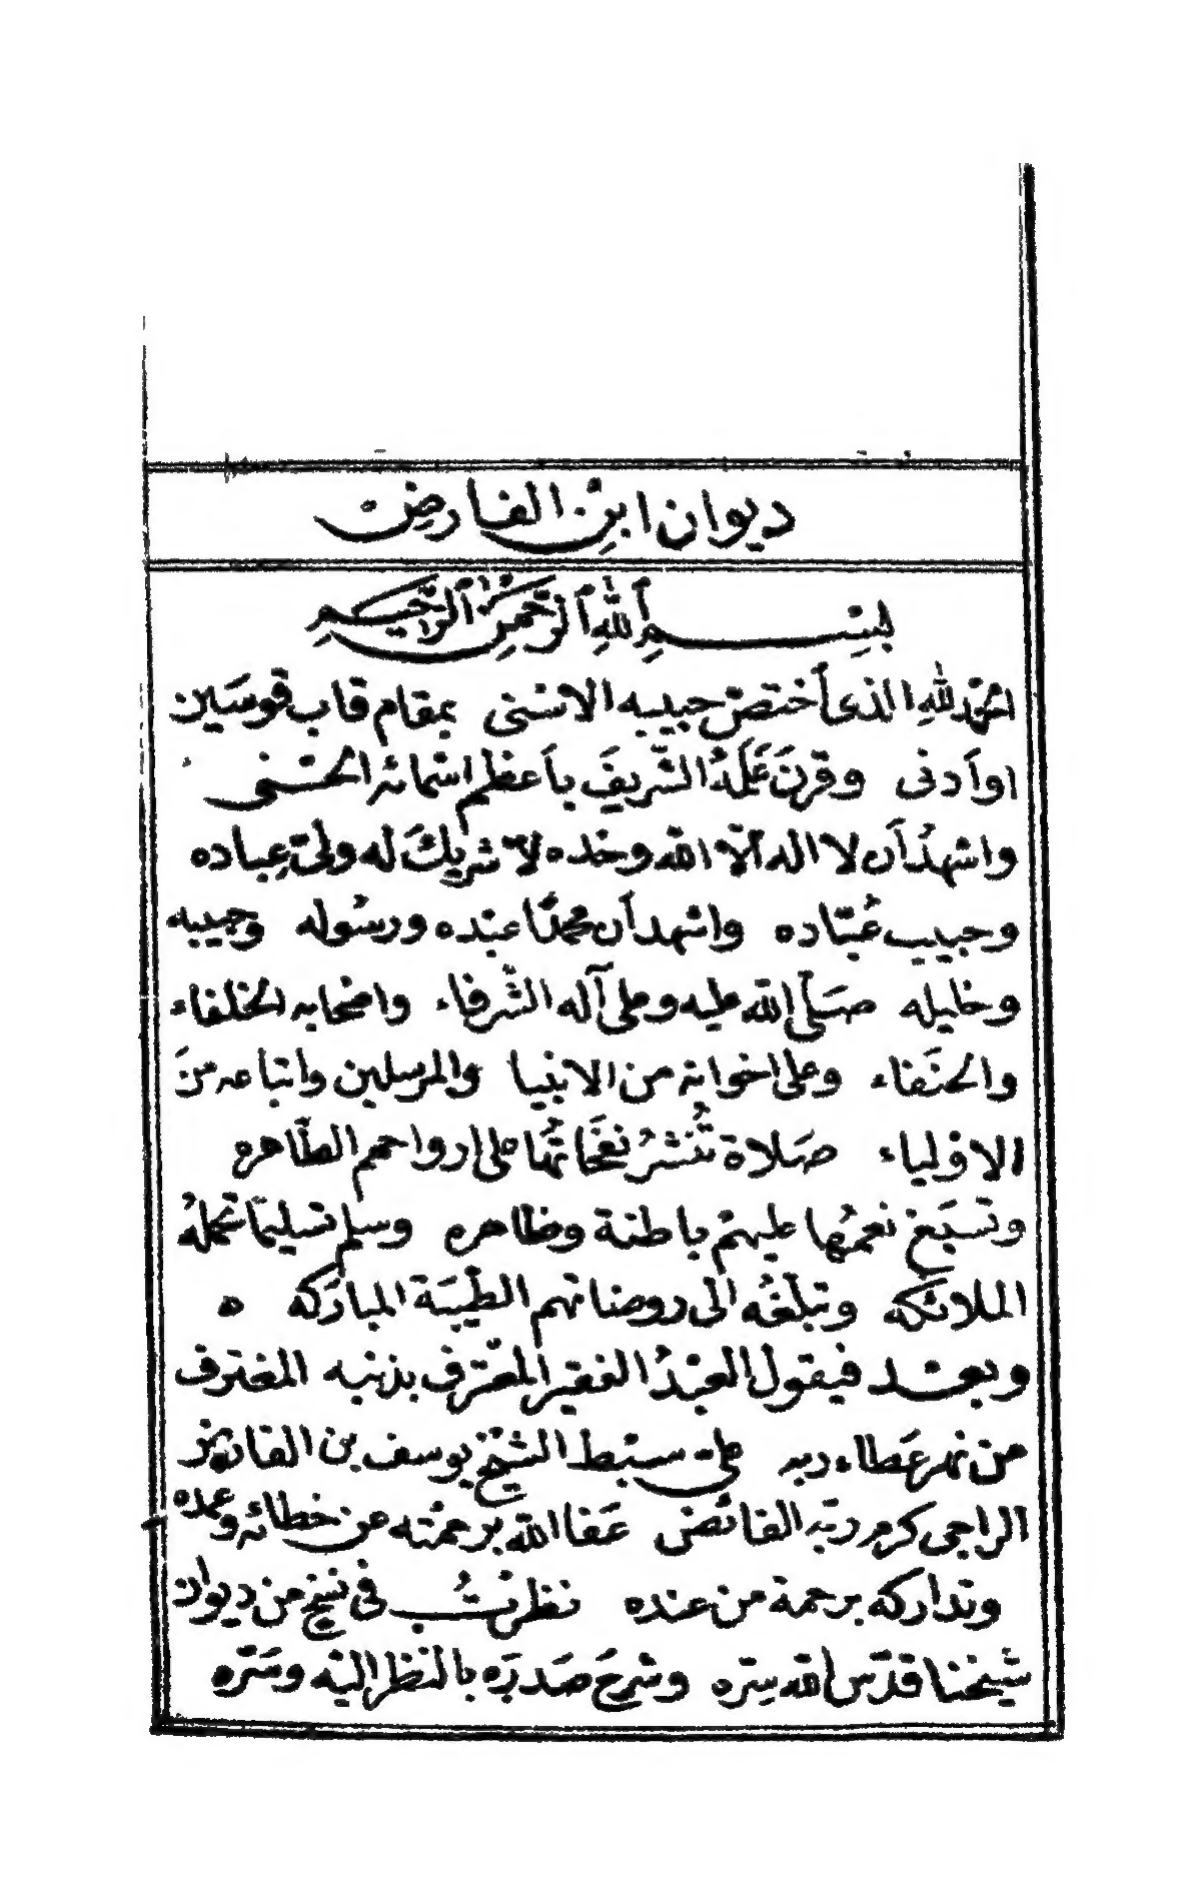 ديوان ابن الفارض
بسم الله الرحمن الرحيم
الحمد لله الذى أختصّ حبيبه الاسنى بمقام قاب قوسَين
او أدنى وقرنَ عَلَمَهُ الشّريفَ بأعظم اسمائه الحسنى
واشهدُ أن لا اله الّا الله وحده لا شريكَ له ولىّ عِباده
وحبيب عُبّاده واشهد أن محمدًا عبده ورسُوله وحبيبه
وخليله صَلّى الله عليه وعلى آله الشّرفاء واصحابه الخلفاء
والحنَفاء وعلى اخوانه من الانبيا والمرسلين واتباعه منَ
الاوْلياء صَلاة تُنشرُ نفحَاتُها على ارواحهم الطّاهره
وتسبَغ نعمُها عليهمْ باطنة وظاهره وسلم تسليمًا تحملهُ
الملائكه وتبلّغُه الى روضاتهم الطّيبَة المباركه ه
وبعْد فيقول العبْدُ الفقير المعْترف بذنبه المغترف
من نهر عَطاء ربه على سبْط الشيْخ يوسف بن الفارض
الراجى كرم ربّه الفائض عَفا الله برحمْته عن خطائه وعمده
وتداركه برحمة من عنده نظرْتُ فى نسَخ من ديوان
شيخنا قدّس الله سِرّه وشرحَ صَدرَه بالنّظر اليْه وسَرّه